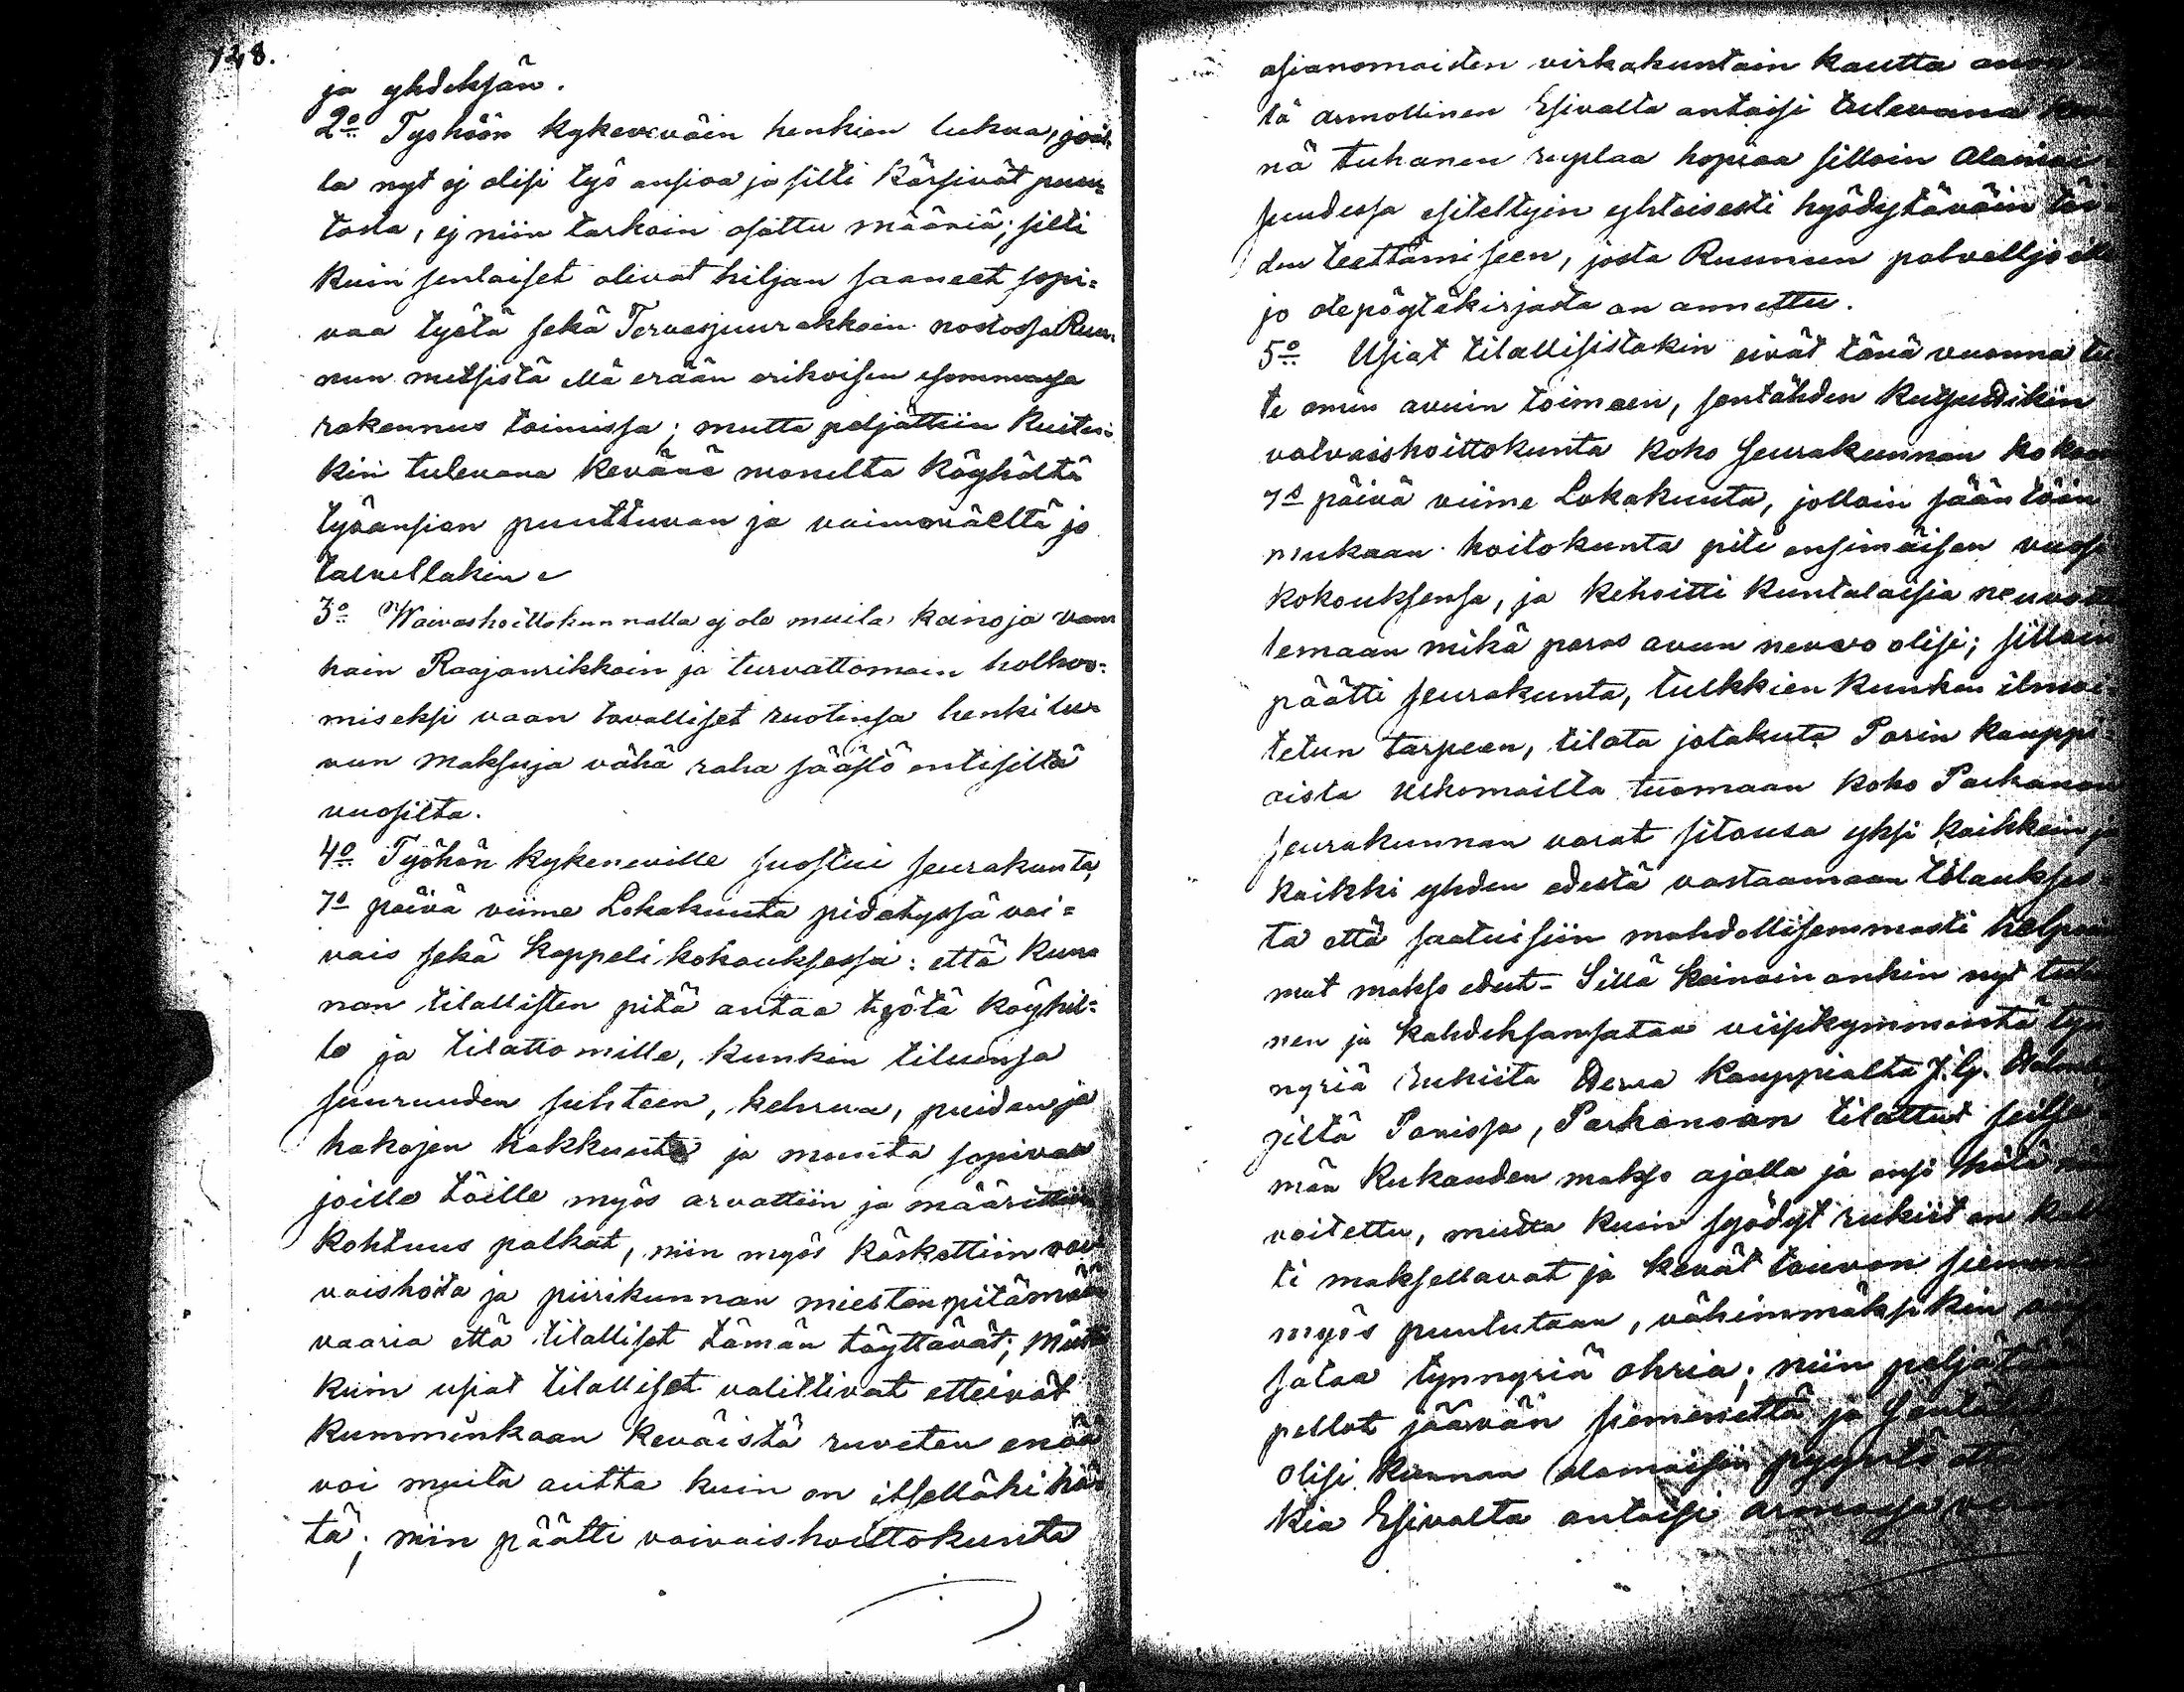 128.
ja yhdeksän.
2o Työhöön kykeneväin henkien lukua, joil-
la nyt ej olisi työ ansioa ja silti kärsivät puu-
tosta, ej niin tarkoin osattu määriä; silti
kuin senlaiset olivat hiljan saaneet sopi=
vaa työtä sekä Tervasjuurakkoin nostossa Ruu-
nun metsistä että erään erikoisen isommassa
rakennus toimissa; mutta peljättiin kuiten-
kin tulevana keväänä monelta köyhältä
työansion puuttuvan ja vaimoväeltä jo
talvellakin
3o Waivashoittokunnalla ej ole muita keinoja van
hain Raajanrikkoin ja turvattomain holhoo=
miseksi vaan tavalliset ruotinsa henkilu-
vun maksuja vähä raha säästö entisiltä
vuosilta.
4o Työhön kykeneville suostui seurakunta,
7ä päivä viime Lokakuuta pidetyssä vai=
vais sekä kappeli kokouksessa: että kun-
nan tilallisten pitä antaa työtä köyhil=
le ja tilattomille, kunkin tiluensa
suuruuden suhteen, kehruu, puiden ja
hakojen hakkuuta ja muuta sopivaa
joille töille myös arvattiin ja määrättiin
kohtuus palkat, niin myös käskettiin vai-
vaishoito ja piirikunnan miesten pitämään
vaaria että tilalliset tämän täyttävät; Mutta
kuin usiat tilalliset valittivat etteivät
kumminkaan keväistä ruveten enää
voi muita auttaa kuin on itselläki hä-
tä; niin päätti vaivaishoittokunta
asianomaisten virkakuntain kautta anoa
tä armollinen Esivalta antaisi tulevana
nä tuhanen ruplaa hopeaa silloin Alamai
suudessa esiteltyin yhteisesti hyödytäväin töi-
den teettämiseen, josta Ruunun palvelljoille
jo otepöytäkirjasta on annettu.
5o Usiat tilallisistakin eivät tänä vuonna tu
te omin avuin toimeen, sentähden kutsuttikin
vaivaishoittokunta koko seurakunnan kokoon
7ä päivä viime Lokakuuta, jolloin säännöön
mukaan hoitokunta piti ensimäisen vuosi
kokouksensa, ja kehoitti kuntalaisia neuvot-
temaan mikä paras avun neuvo olisi; silloin
päätti seurakunta, tulkkien kunkin ilmoi-
tetun tarpeen, tilata jotakuta Porin kauppi-
aista ulkomailta tuomaan koko Parkanon
seurakunnan varat sitousa yksi kaikkein ja
kaikki yhden edestä vastaamaan tilaukses-
ta että saataisiin mahdollisemmasti helpoi
mat makso edut – Sillä keinoin onkin nyt tuha
nen ja kahdeksansataa viisikymmentä tyn
nyriä rukiita kauppialta
siltä Porissa, Parkanoon tilattut seitse
män kukauden makso ajalla ja ensi hätä
voitettu, mutta kuin syödyt rukiit on
ti maksettavat ja kevät touvon siemeniä
myös puututaan, vähimmäksikin
sataa tynnyriä ohria; niin peljätään
pellot jäävän siemenettä ja Sentähden
olisi kunnan alamaisin pyyntö että
kia Esivalta antaisi armossa